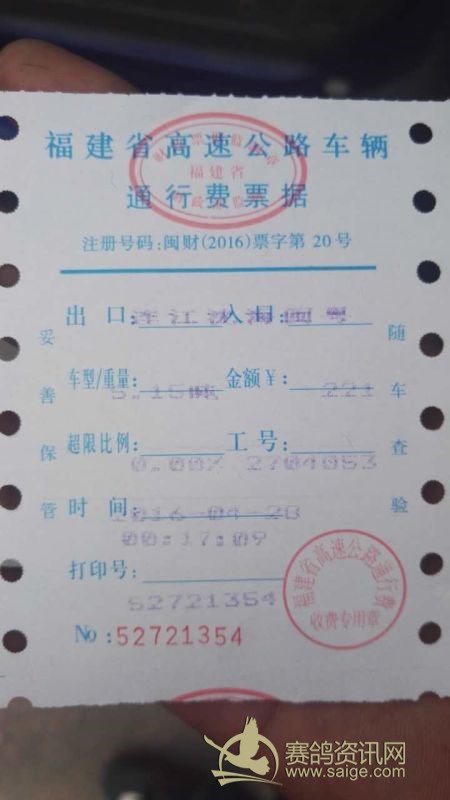 福建省高速公路车辆
福建省
通行费票据
注册号码:闽财(2016)票字第20号
出口: 入口:
车型/重量: 5.15吨 金额¥: 221
超限比例: 0.00% 工号: 2704053
时间 2016-04-28
00:17:09
打印号:
52721354
No:52721354
妥善保管
随车查验
福建省高速公路通行费
收费专用章
赛鸽资讯网
www.saige.com